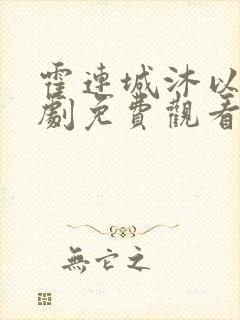 霍連城沐以
劇免費觀看
無它之